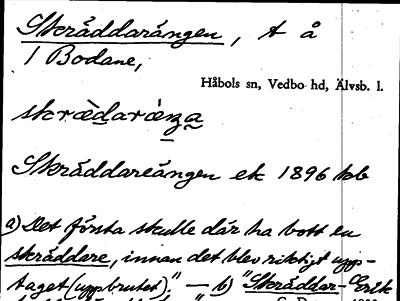 Skräddarängen, t å
1 Bodane,
Håbols sn, Vedbo hd, Älvsb. l.
skrædaræŋa
Skräddareängen ek 1896 kb
a) Det första skulle där ha bott en
skräddare, innan det blev riktigt upp-
taget (uppbrutet)." — b) "Skräddar-Erik